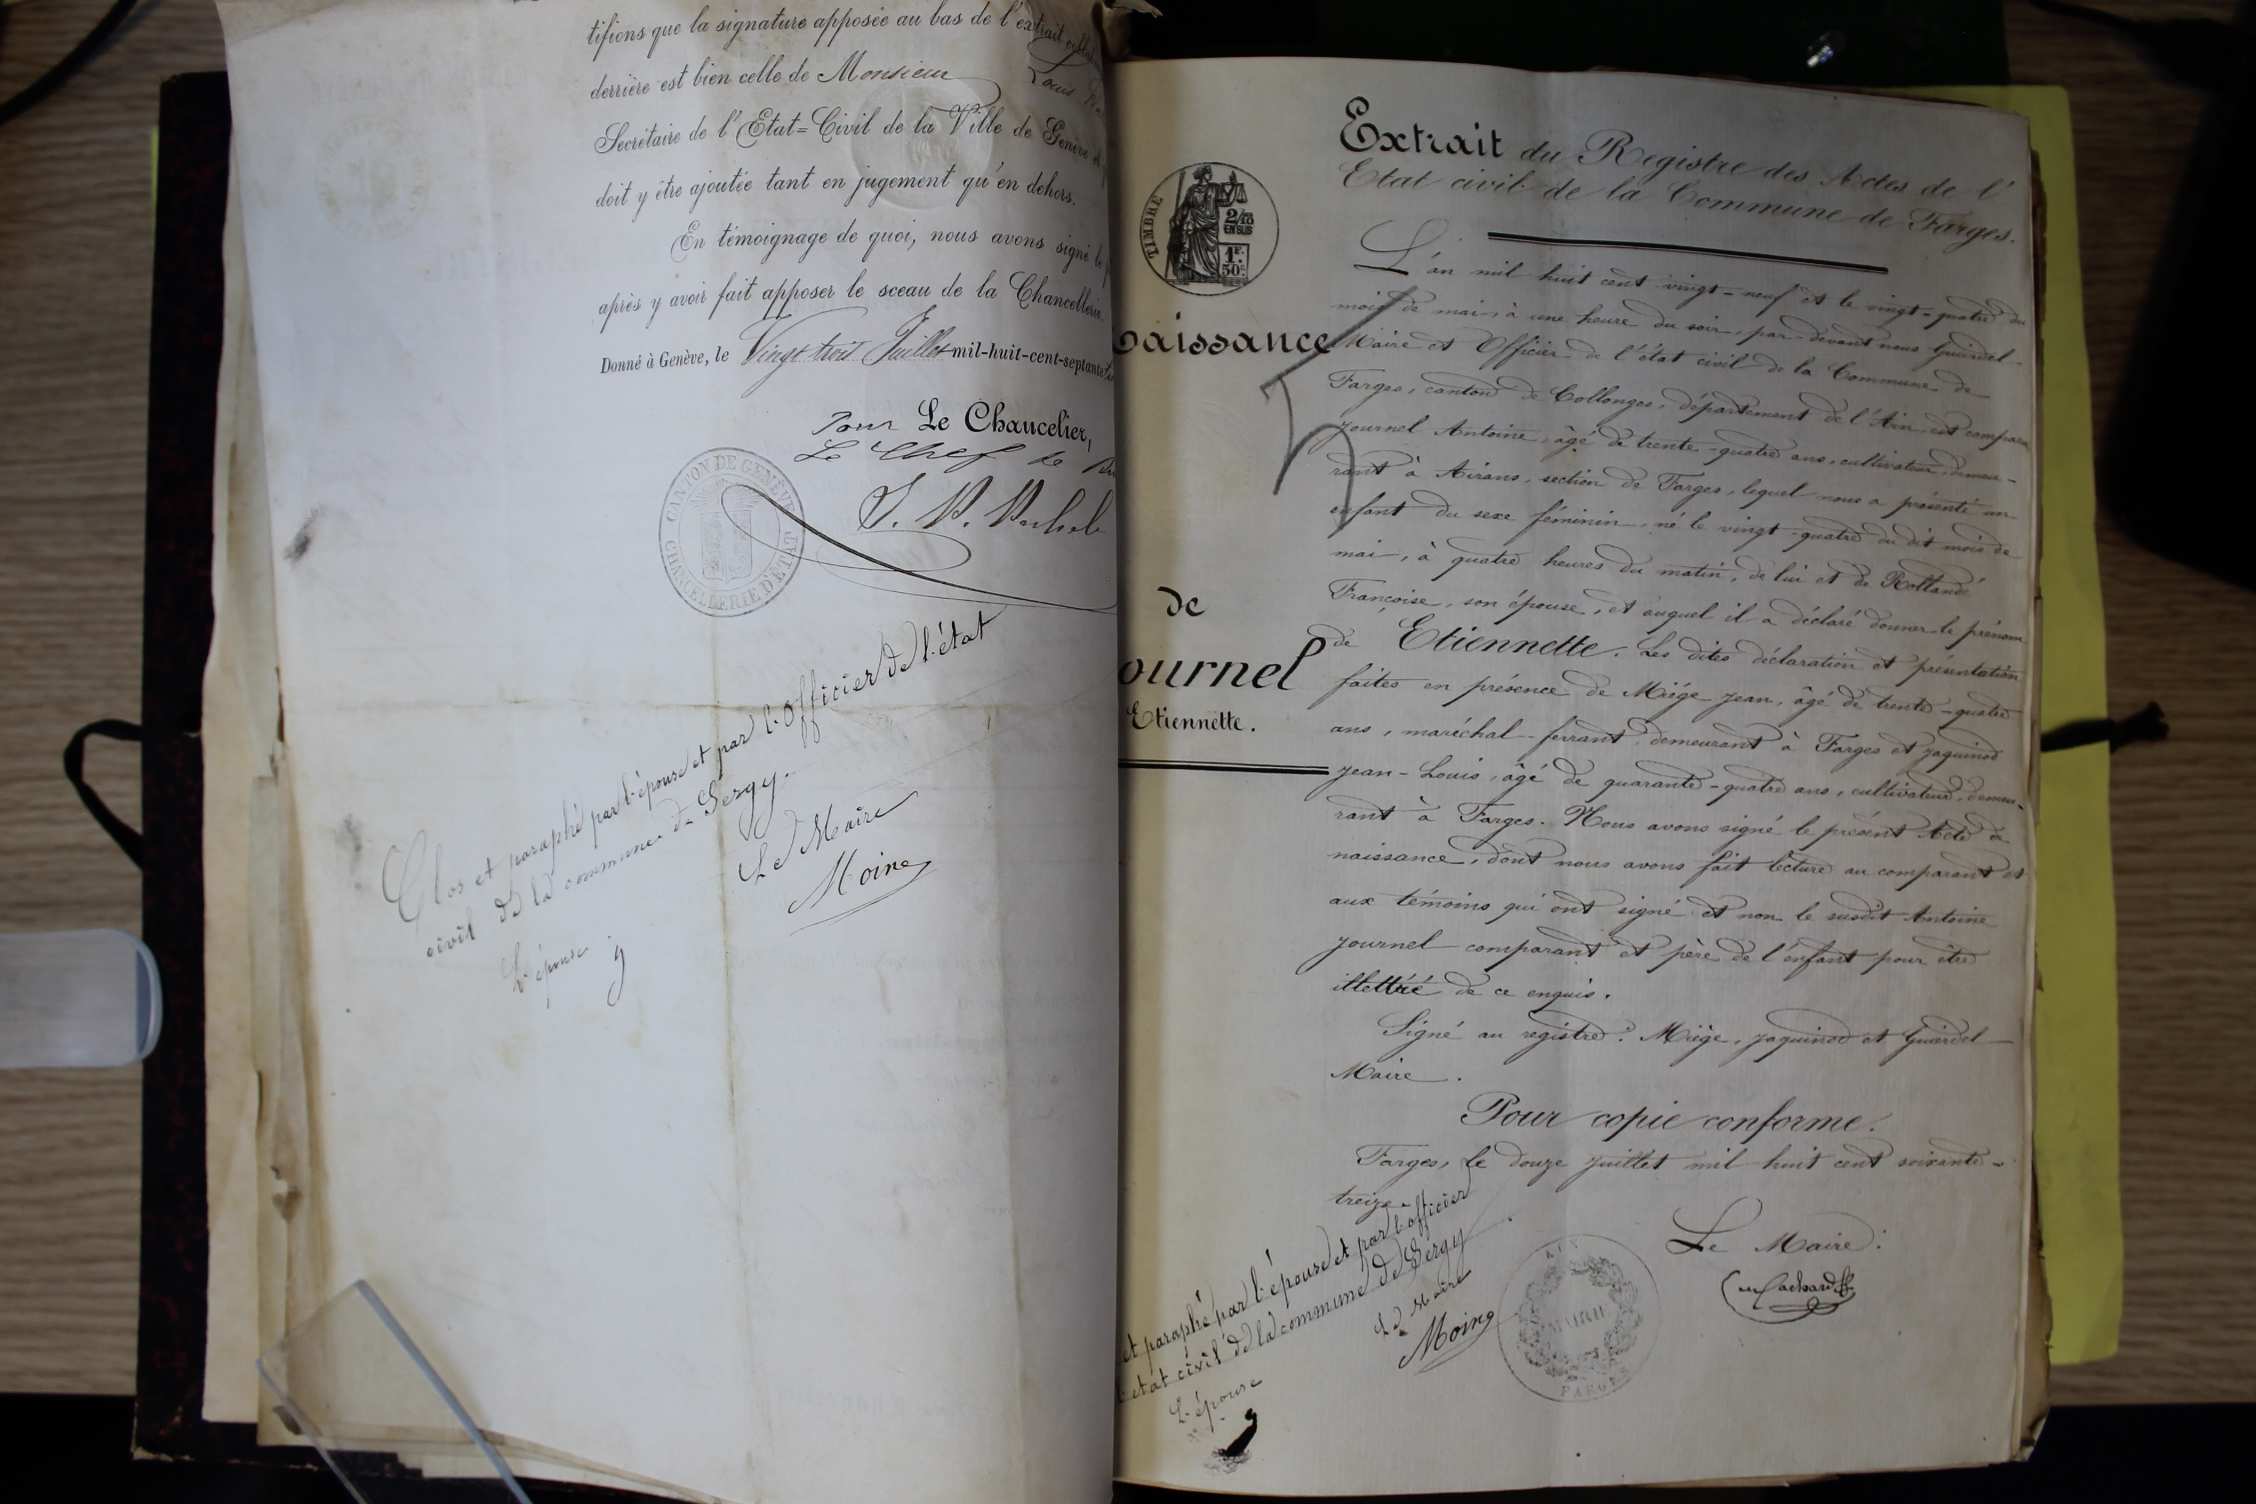 tifions que la signature apposée au bas de l'extrait
derrière est bien celle de Monsieur Louis
Secrétaire de l'Etat=Civil de la Ville de Genève et
doit y être ajoutée tant en jugement qu'en dehors.
En témoignage de quoi, nous avons signé le
après y avoir fait apposer le sceau de la Chancellerie.
Donné à Genève, le Vingt trois Juillet mil-huit-cent-septante
Pour Le Chancelier,
Le Chef de
CANTON DE GENÈVE
CHANCELLERIE D'ETAT
Clos et paraphé par l'épouse et par l'officier de l'état
civil de la commune de Sergy.
Le Maire
Moine
L'épouse
TIMBRE
2/10
EN SUS
1F.
50C.
Naissance
de
ournel
Etiennette.
Extrait du Registre des Actes de l'
Etat civil de la Commune de Farges.
L'an mil huit cent vingt-neuf et le vingt-quatre du
mois de mai, à une heure du soir, par-devant nous
Maire et Officier de l'état civil de la Commune de
Farges, canton de Collonges, département de l'Ain, est comparu
Journel Antoine, âgé de trente-quatre ans, cultivateur, demeu-
rant à Airans, section de Farges, lequel nous a présenté un
enfant du sexe féminin, né le vingt-quatre du dit mois de
mai, à quatre heures du matin, de lui et de Rolland
Françoise, son épouse, et auquel il a déclaré donner le prénom
de Etiennette. Les dites déclaration et présentation
faites en présence de Miège Jean, âgé de trente-quatre
ans, maréchal-ferrant, demeurant à Farges et Jaquinod
Jean-Louis, âgé de quarante-quatre ans, cultivateur, demeu-
rant à Farges. Nous avons signé le présent Acte de
naissance, dont nous avons fait lecture au comparant et
aux témoins qui ont signé et non le susdit Antoine
Journel comparant et père de l'enfant pour être
illettré de ce enquis.
Signé au registre: Miège, Jaquinod et
Maire.
Pour copie conforme.
Farges, le douze Juillet mil huit cent soixante-
treize.
Le Maire:
AIN
MAIRIE
FARGES
et paraphé par l'épouse et par l'officier
l'état civil de la commune de Sergy
Le Maire
Moine
L'épouse